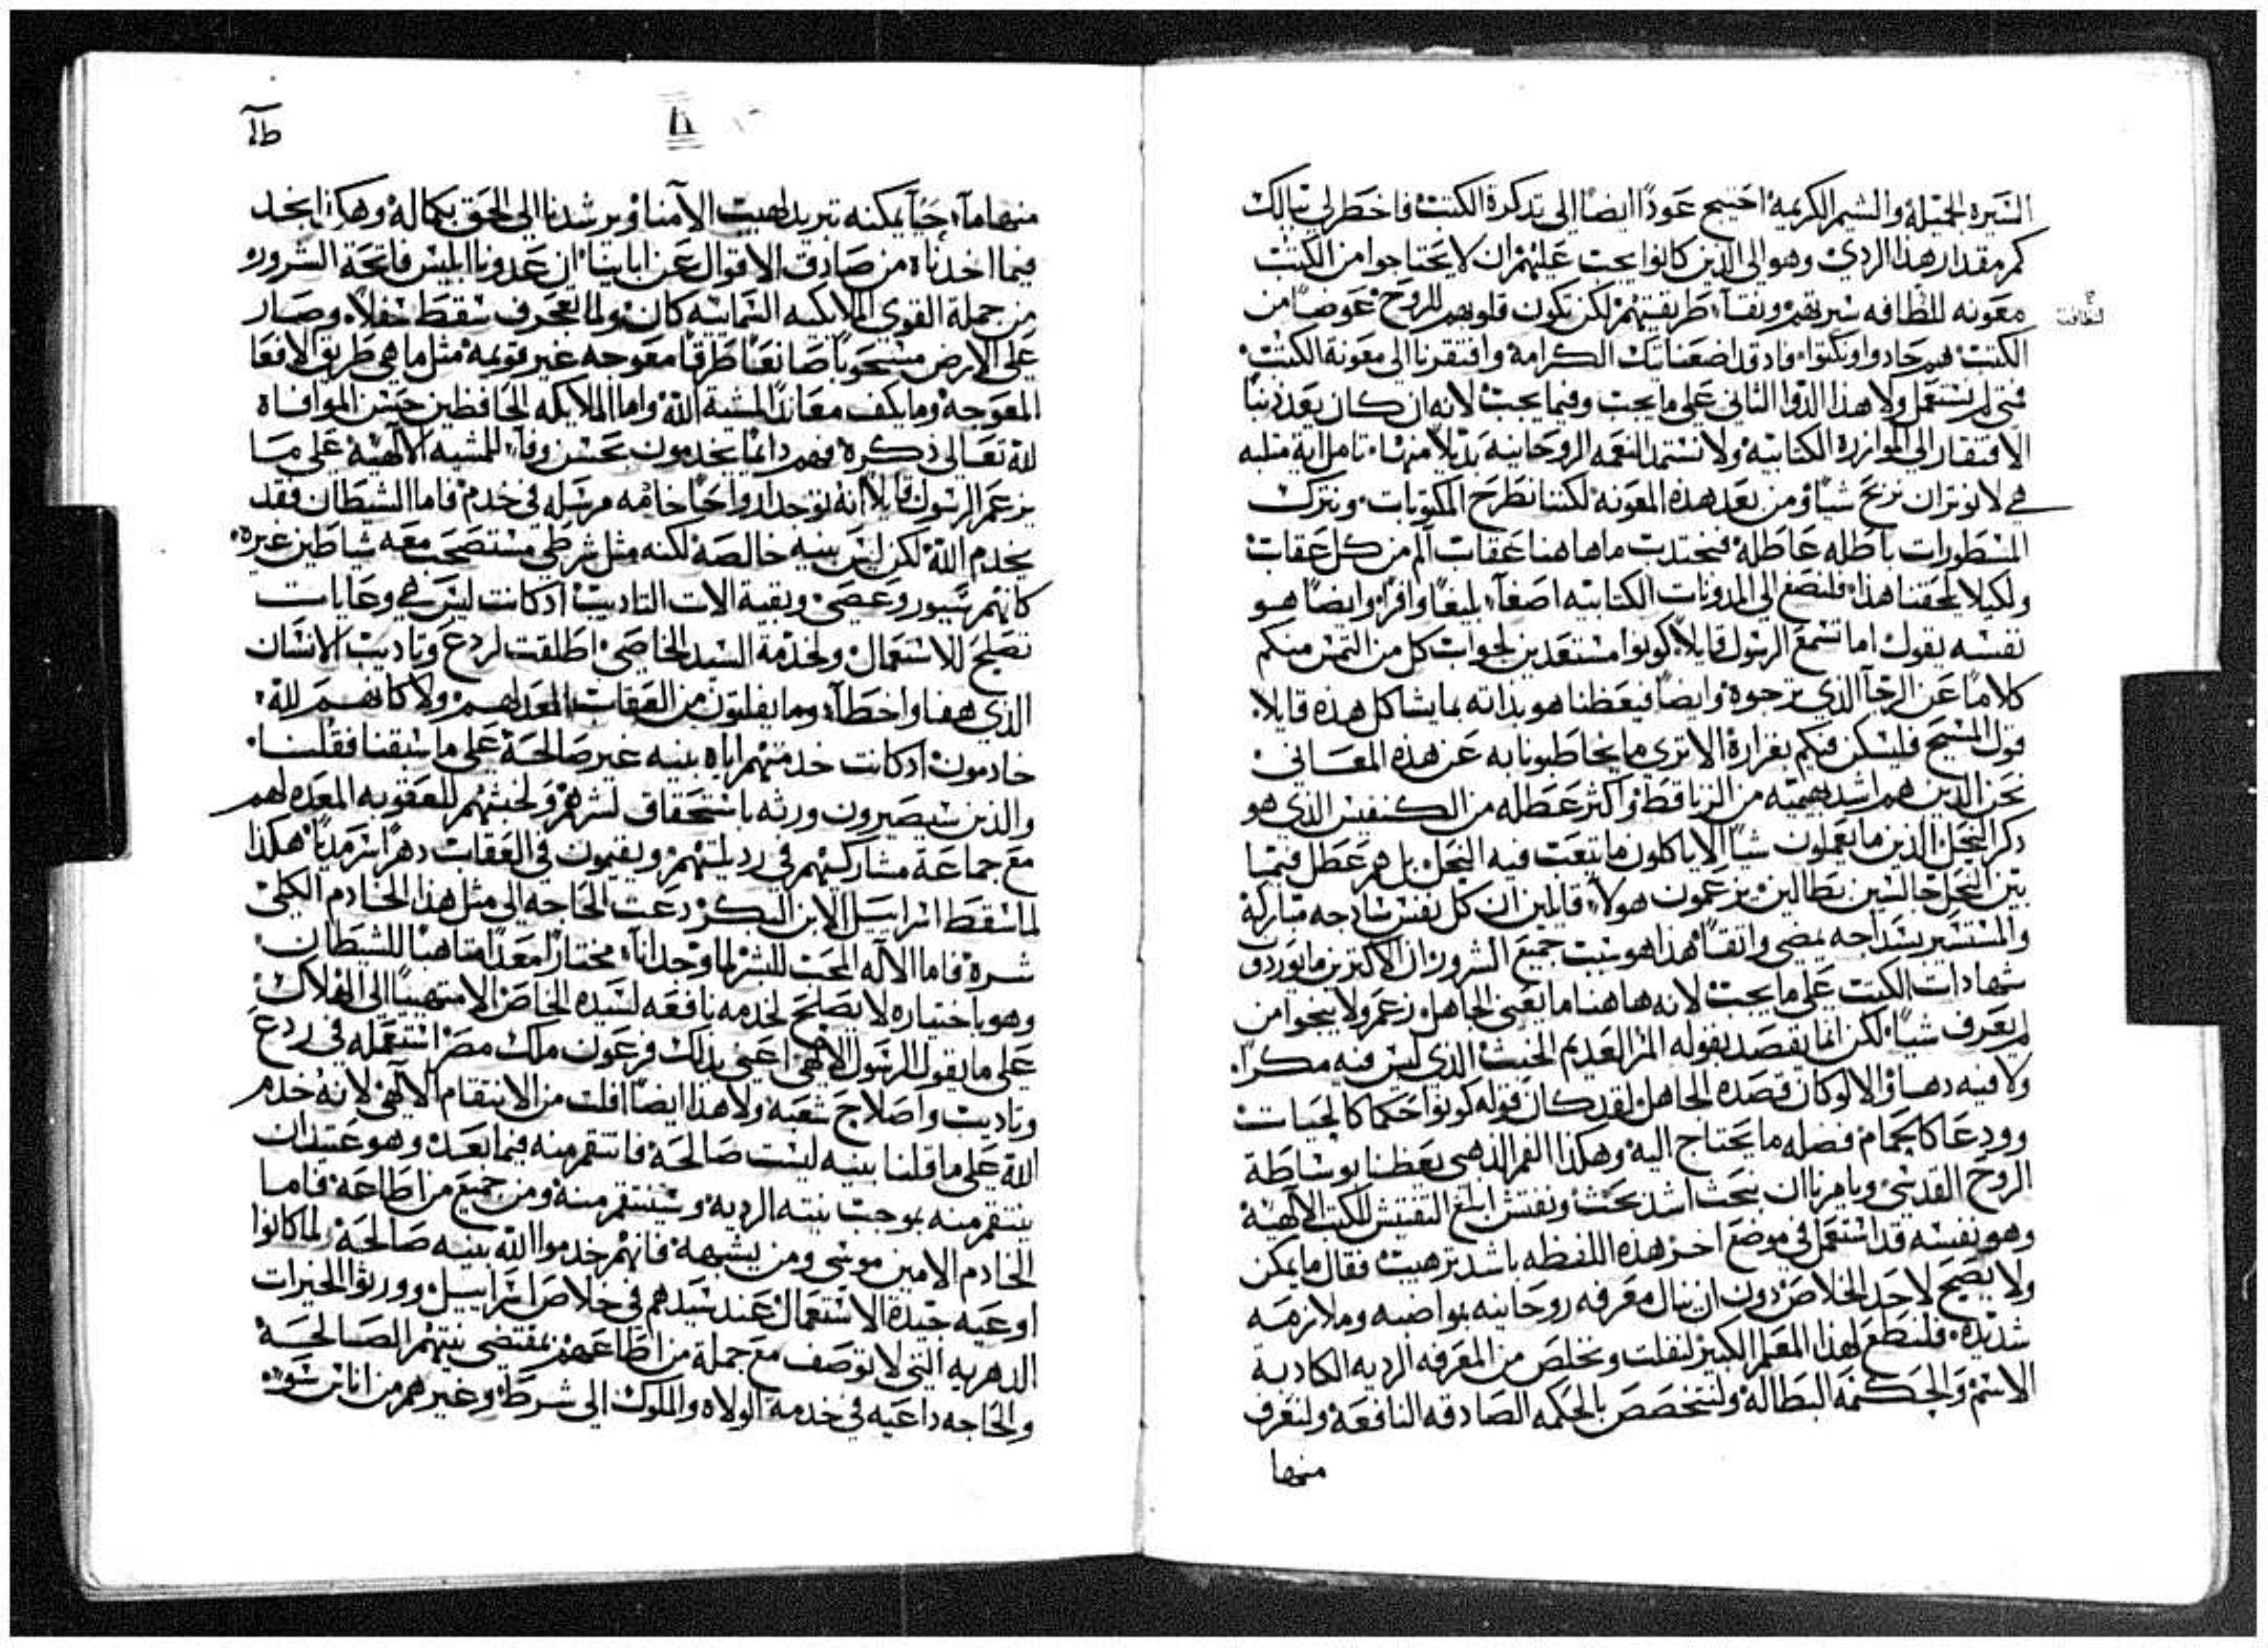 السيره الجميله والشيم الكريمه احتيج عودًا ايضًا الى تدكرة الكتب فاخطر لي ببالك
كم مقدار هدا الردي وهو الى الدين كانوا يجب عليهم ان لا يحتاجوا من الكتب
معونه للطافه سيرتهم ونقآ طريقتهم لكن تكون قلوبهم للروح عوضًا من
لنظافة
الكتب هم حادوا ونكبوا فاد قد اضعنا تلك الكرامة وافتقرنا الى معونة الكتب
فتى لم نستعمل ولا هدا الدوا التاني على ما يجب وفيما يجب لانه ان كان يعد دنبًا
الافتقار الى الموازرة الكتابيه ولا نستمد النعمه الروحانيه بديلاً منها تامل اية مثلبه
هي لا نوتر ان نربح شيًا ومن بعد هده المعونه لكننا نطرح المكتوبات ونترك
المسطورات باطله عاطلة فنجتدب ما هاهنا عقاب الم من كل عقاب
ولكيلا يلحقنا هدا فلنصغ الى المدونات الكتابيه اصغآ بليغًا وافرًا وايضًا هو
نفسه يقول اما تسمع الرسول قايلاً كونوا مستعدين لجواب كل من التمس منكم
كلامًا عن الرجآ الدي ترجوه وايضًا فيعظنا هو بداته بما يشاكل هده قايلا
قول المسيح فليسكن فيكم بغزارة الا ترى ما يخاطبونا به عن هده المعاني
نحن الدين هم اشد بهيميه من الزناقط واكثر عطله من الكنفيس الدي هو
دكر النحل الدين ما يعملون شيًا الا ياكلون ما يتعب فيه النحل بل هم عطل فيما
بين النحل جالسين بطالين يزعمون هولآ قايلين ان كل نفس سادجه مباركة
والمستسير بسداجه يمضي واتقًا هدا هو سبب جميع الشرور ان الاكترين ما يوردون
شهادات الكتب على ما يجب لانه هاهنا ما يعني الجاهل زعم ولا ينجوا من
لم يعرف شيًا لكن انما يقصد بقوله المر العديم الخبث الدي ليس فيه مكرًا
ولا فيه دهآ والا لو كان قصده الجاهل لقد كان قوله كونوا حكما كالحيات
وودعا كالحمام فضله ما يحتاج اليه وهكدا الفم الدهبي يعظنا بوساطة
الروح القدسي ويامرنا ان نبحث اشد بحث ونفتش ابلغ التفتيش للكتب الالهية
وهو نفسه قد استعمل في موضع اخر هده اللفظه باشد ترهيب فقال ما يمكن
ولا يصح لاحد الخلاص دون ان ينال معرفه روحانيه بمواضبه وملازمه
شديده فلنطع لهدا المعلم الكبير لنفلت ونخلص من المعرفه الرديه الكادبة
الاسم والحكمه البطالة ولنتخصص بالحكمه الصادقه النافعة ولنغرف
منها
منها مآء حيآ يمكنه تبريد لهيب الامنا ويرشدنا الى الحق بكماله وهكدا نجد
فيما اخدناه من صادق الاقوال عن اباينا ان عدونا ابليس فاتحة الشرور
من جملة القوى الملايكيه السماييه كان ولما تعجرف سقط سفلاً وصار
على الارض مسحوبًا صانعًا طرقًا معوجه غير قويمه مثل ما هي طريق الافعا
المعوجة وما يكف معاندًا لمشية الله واما الملايكه الحافظين حسن الموافاة
لله تعالى دكره فهم دايمًا يخدمون بحسن وفآ للمشيه الالهية على ما
يزعم الرسول قايلاً انه توجد ارواحًا خادمه مرسله في خدم فاما الشيطان فقد
يخدم الله لكن ليس بنيه خالصة لكنه مثل شرطي مستصحب معه شياطين غيره
كانهم سيور وعصي وبقية الات التاديب اد كانت ليس هي وعايات
تصلح للاستعمال ولخدمة السيد الخاصي اطلقت لردع وتاديب الانسان
الدي هفا واخطآ وما يفلتون من العقاب المعد لهم ولا كانهم لله
خادمون اد كانت خدمتهم اياه بنيه غير صالحة على ما سبقنا فقلنا
والدين سيصيرون ورثه باستحقاق لشرهم ولخبثهم للعقوبه المعده لهم
مع جماعة مشاركيهم في رديلتهم ويقيمون في العقاب دهرًا سرمديًا هكدا
لما سقط اسراييل الابن البكر دعت الحاجه الى مثل هدا الخادم الكلي
شره فاما الاله المحب للبشر لما وجد انآ مختارًا معدًا متاهبًا للشيطان
وهو باختياره لا يصلح لخدمه نافعه لسيده الخاص الا متهييًا الى الهلاك
على ما يقول الرسول الالهي اعني بدلك فرعون ملك مصر استعمله في ردع
وتاديب واصلاح شعبه ولا هدا ايضًا افلت من الانتقام الالهي لانه خدم
الله على ما قلنا بنيه ليست صالحة فانتقم منه فيما بعد وهو عتيد ان
ينتقم منه بموجب نيته الرديه وسينتقم منه ومن جميع من اطاعه فاما
الخادم الامين موسى ومن يشبهه فانهم خدموا الله بنيه صالحة لما كانوا
اوعيه جيدة الاستعمال عند سيدهم في خلاص اسراييل وورثوا الخيرات
الدهريه التي لا توصف مع جملة من اطاعهم بمقتضى نيتهم الصالحة
والحاجه داعيه في خدمة الولاه والملوك الى شرط وغيرهم من اناس سوء